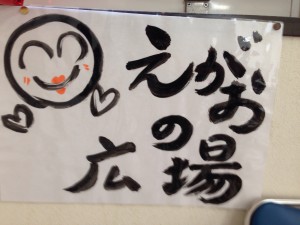 えがお
の
広場